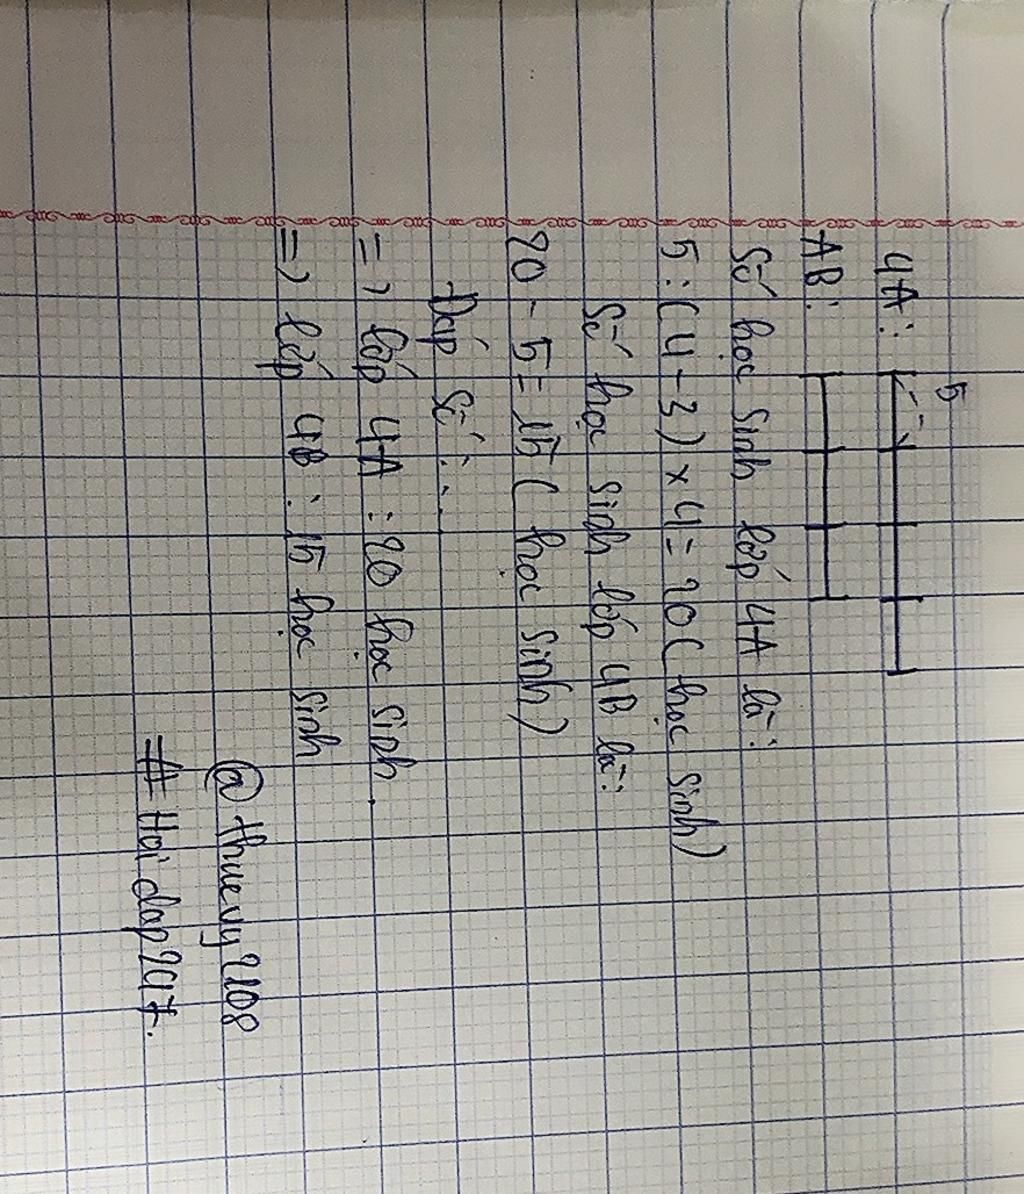 5
4A:
AB:
Số học sinh lớp 4A là:
5 : (4 - 3) × 4 = 20 (học sinh)
Số học sinh lớp 4B là:
20 - 5 = 15 (học sinh)
Đáp số: ...
=> lớp 4A : 20 học sinh.
=> lớp 4B : 15 học sinh
@thuevy2108
#Hoidap247.